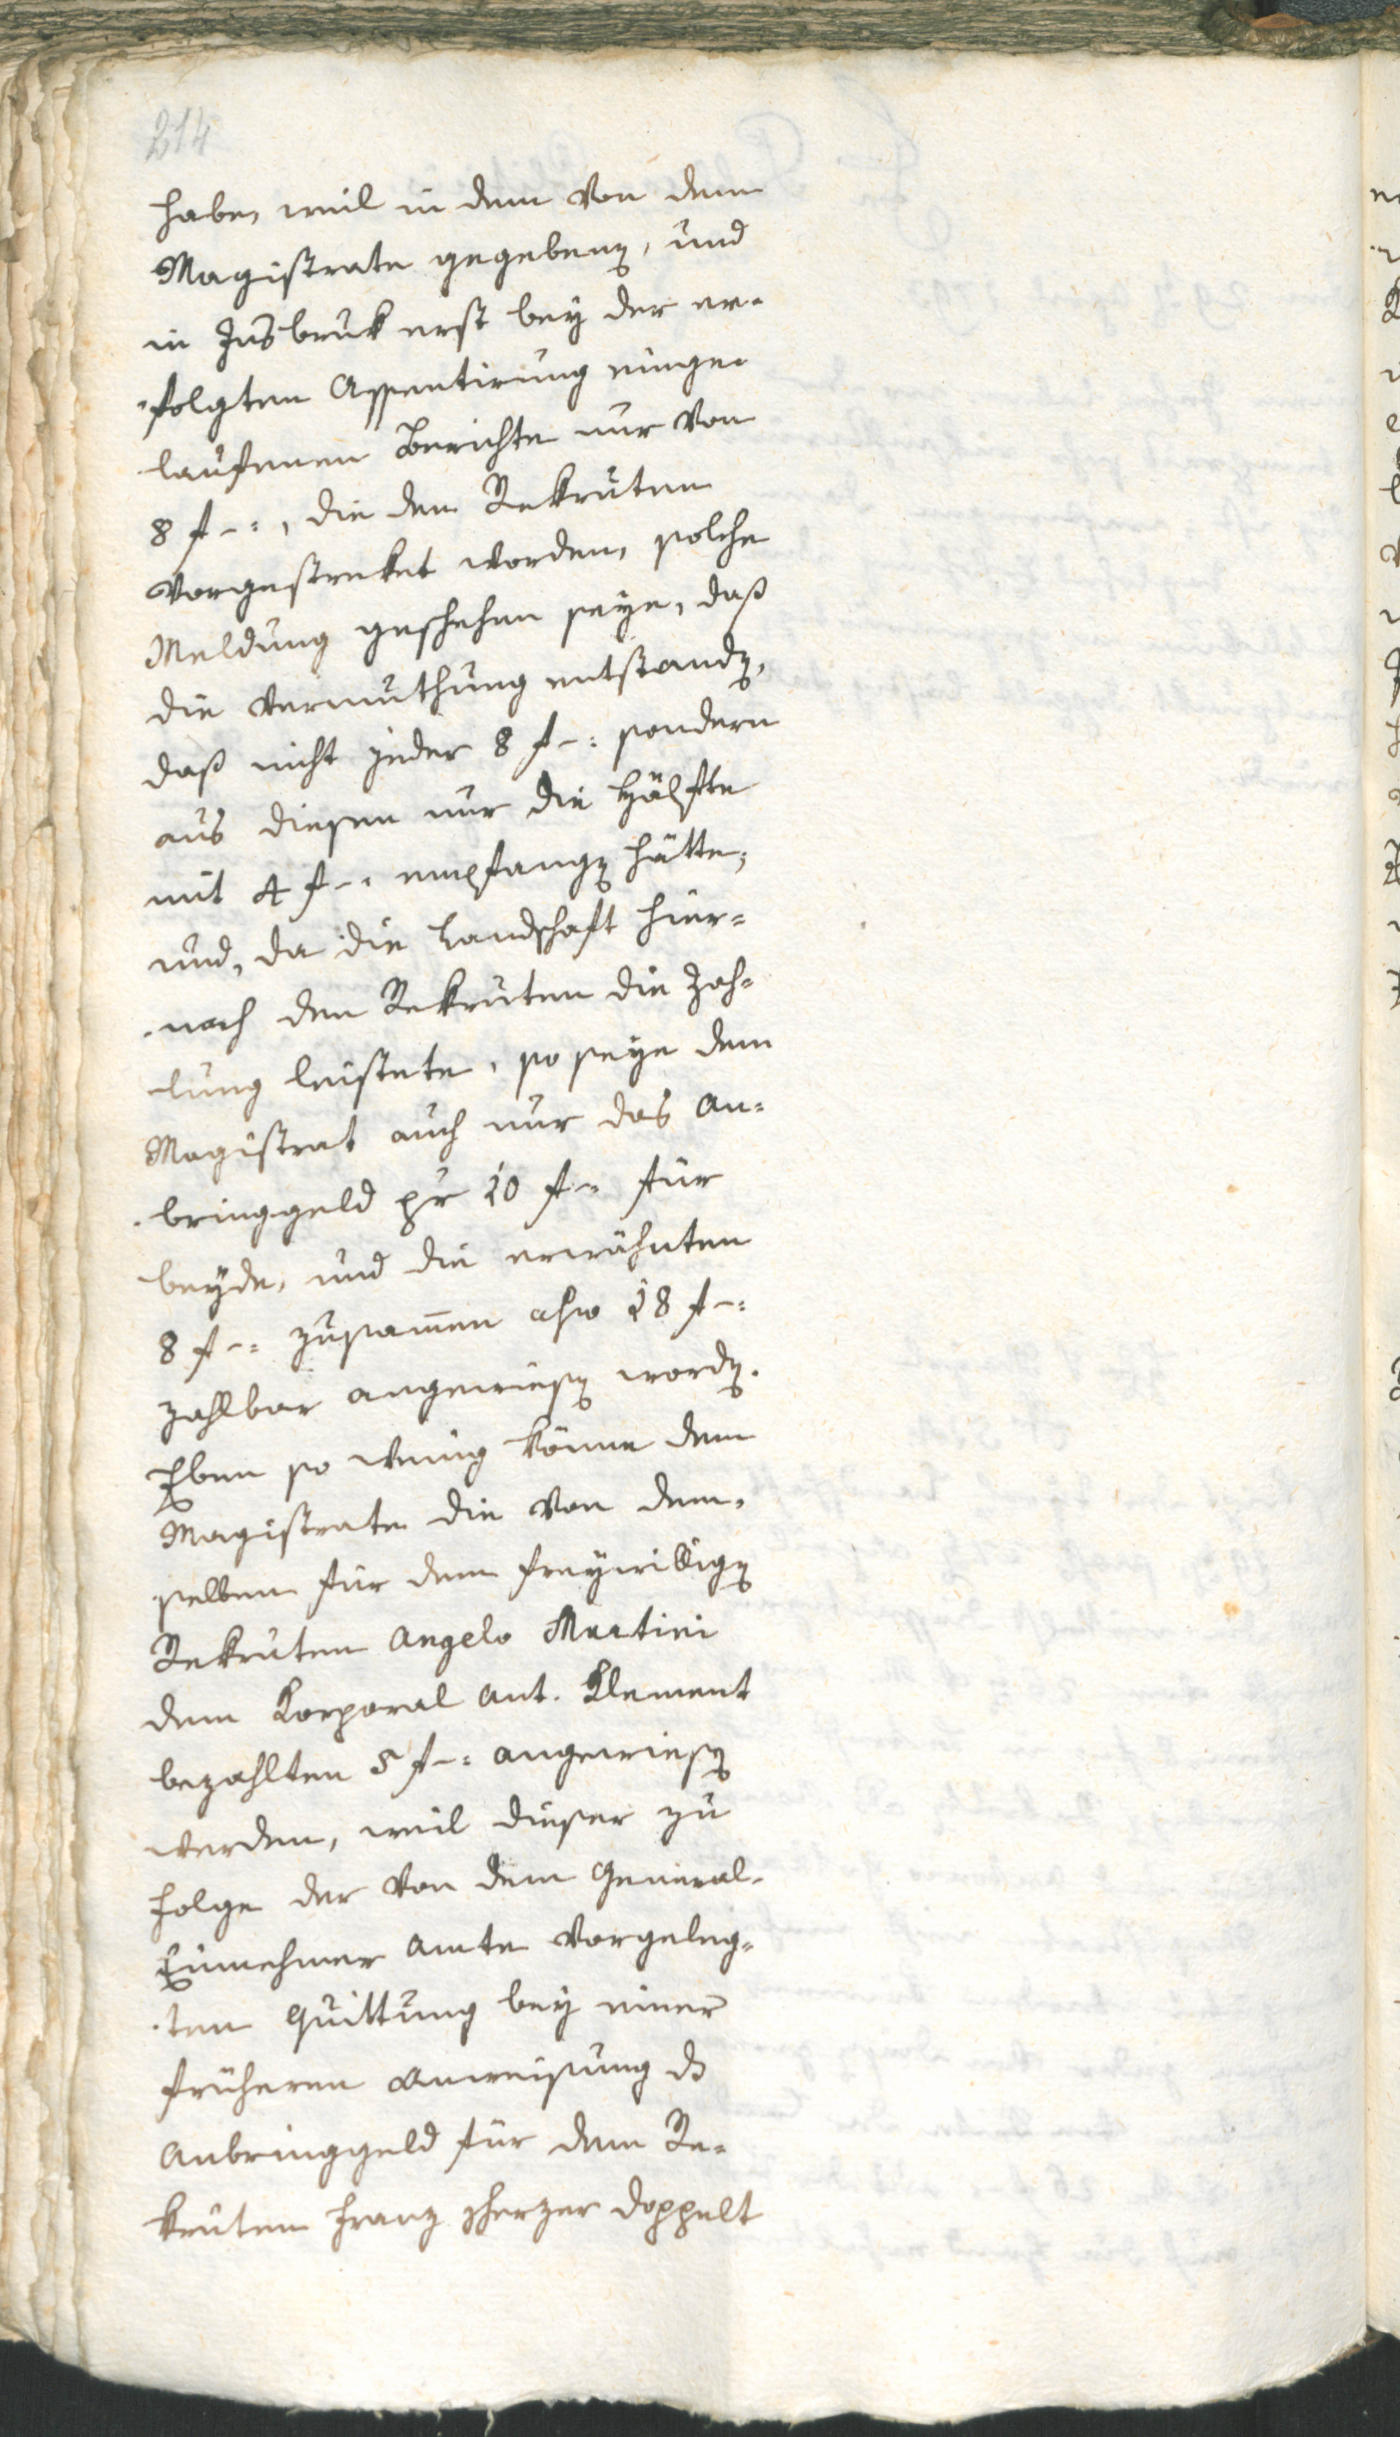 214
habe, weil in dem von dem
Magistrate gegebenen, und
in Insbruk erst bey der er-
folgten Assentirung einge-
laufenen Berichte nur von
8 f -:, die den Rekruten
vorgestreket worden, solche
Meldung geschehen seye, daß
die Vermuthung entstanden,
daß nicht jeder 8 f -: sondern
aus diesen nur die Hälfte
mit 4 f -: empfangen hätte;
und, da die Landschaft hier-
nach den Rekruten die Zah-
lung leistete, so seye dem
Magistrat auch nur das An-
bringgeld pr 10 f -: für
beyde, und die erwähnten
8 f -: zusammen also 18 f -:
zahlbar angewiesen worden.
Eben so wenig könne dem
Magistrate die von dem-
selben für dem freywilligen
Rekruten Angelo Martini
dem Korporal Ant. Klement
bezahlten 5 f -: angewiesen
werden, weil dieser zu
Folge der von dem General-
Einnehmer Amte vorgeleg-
ten Quittung bey einer
früheren Anweisung das
Anbringgeld für dem Re-
kruten Franz Scherzer doppelt